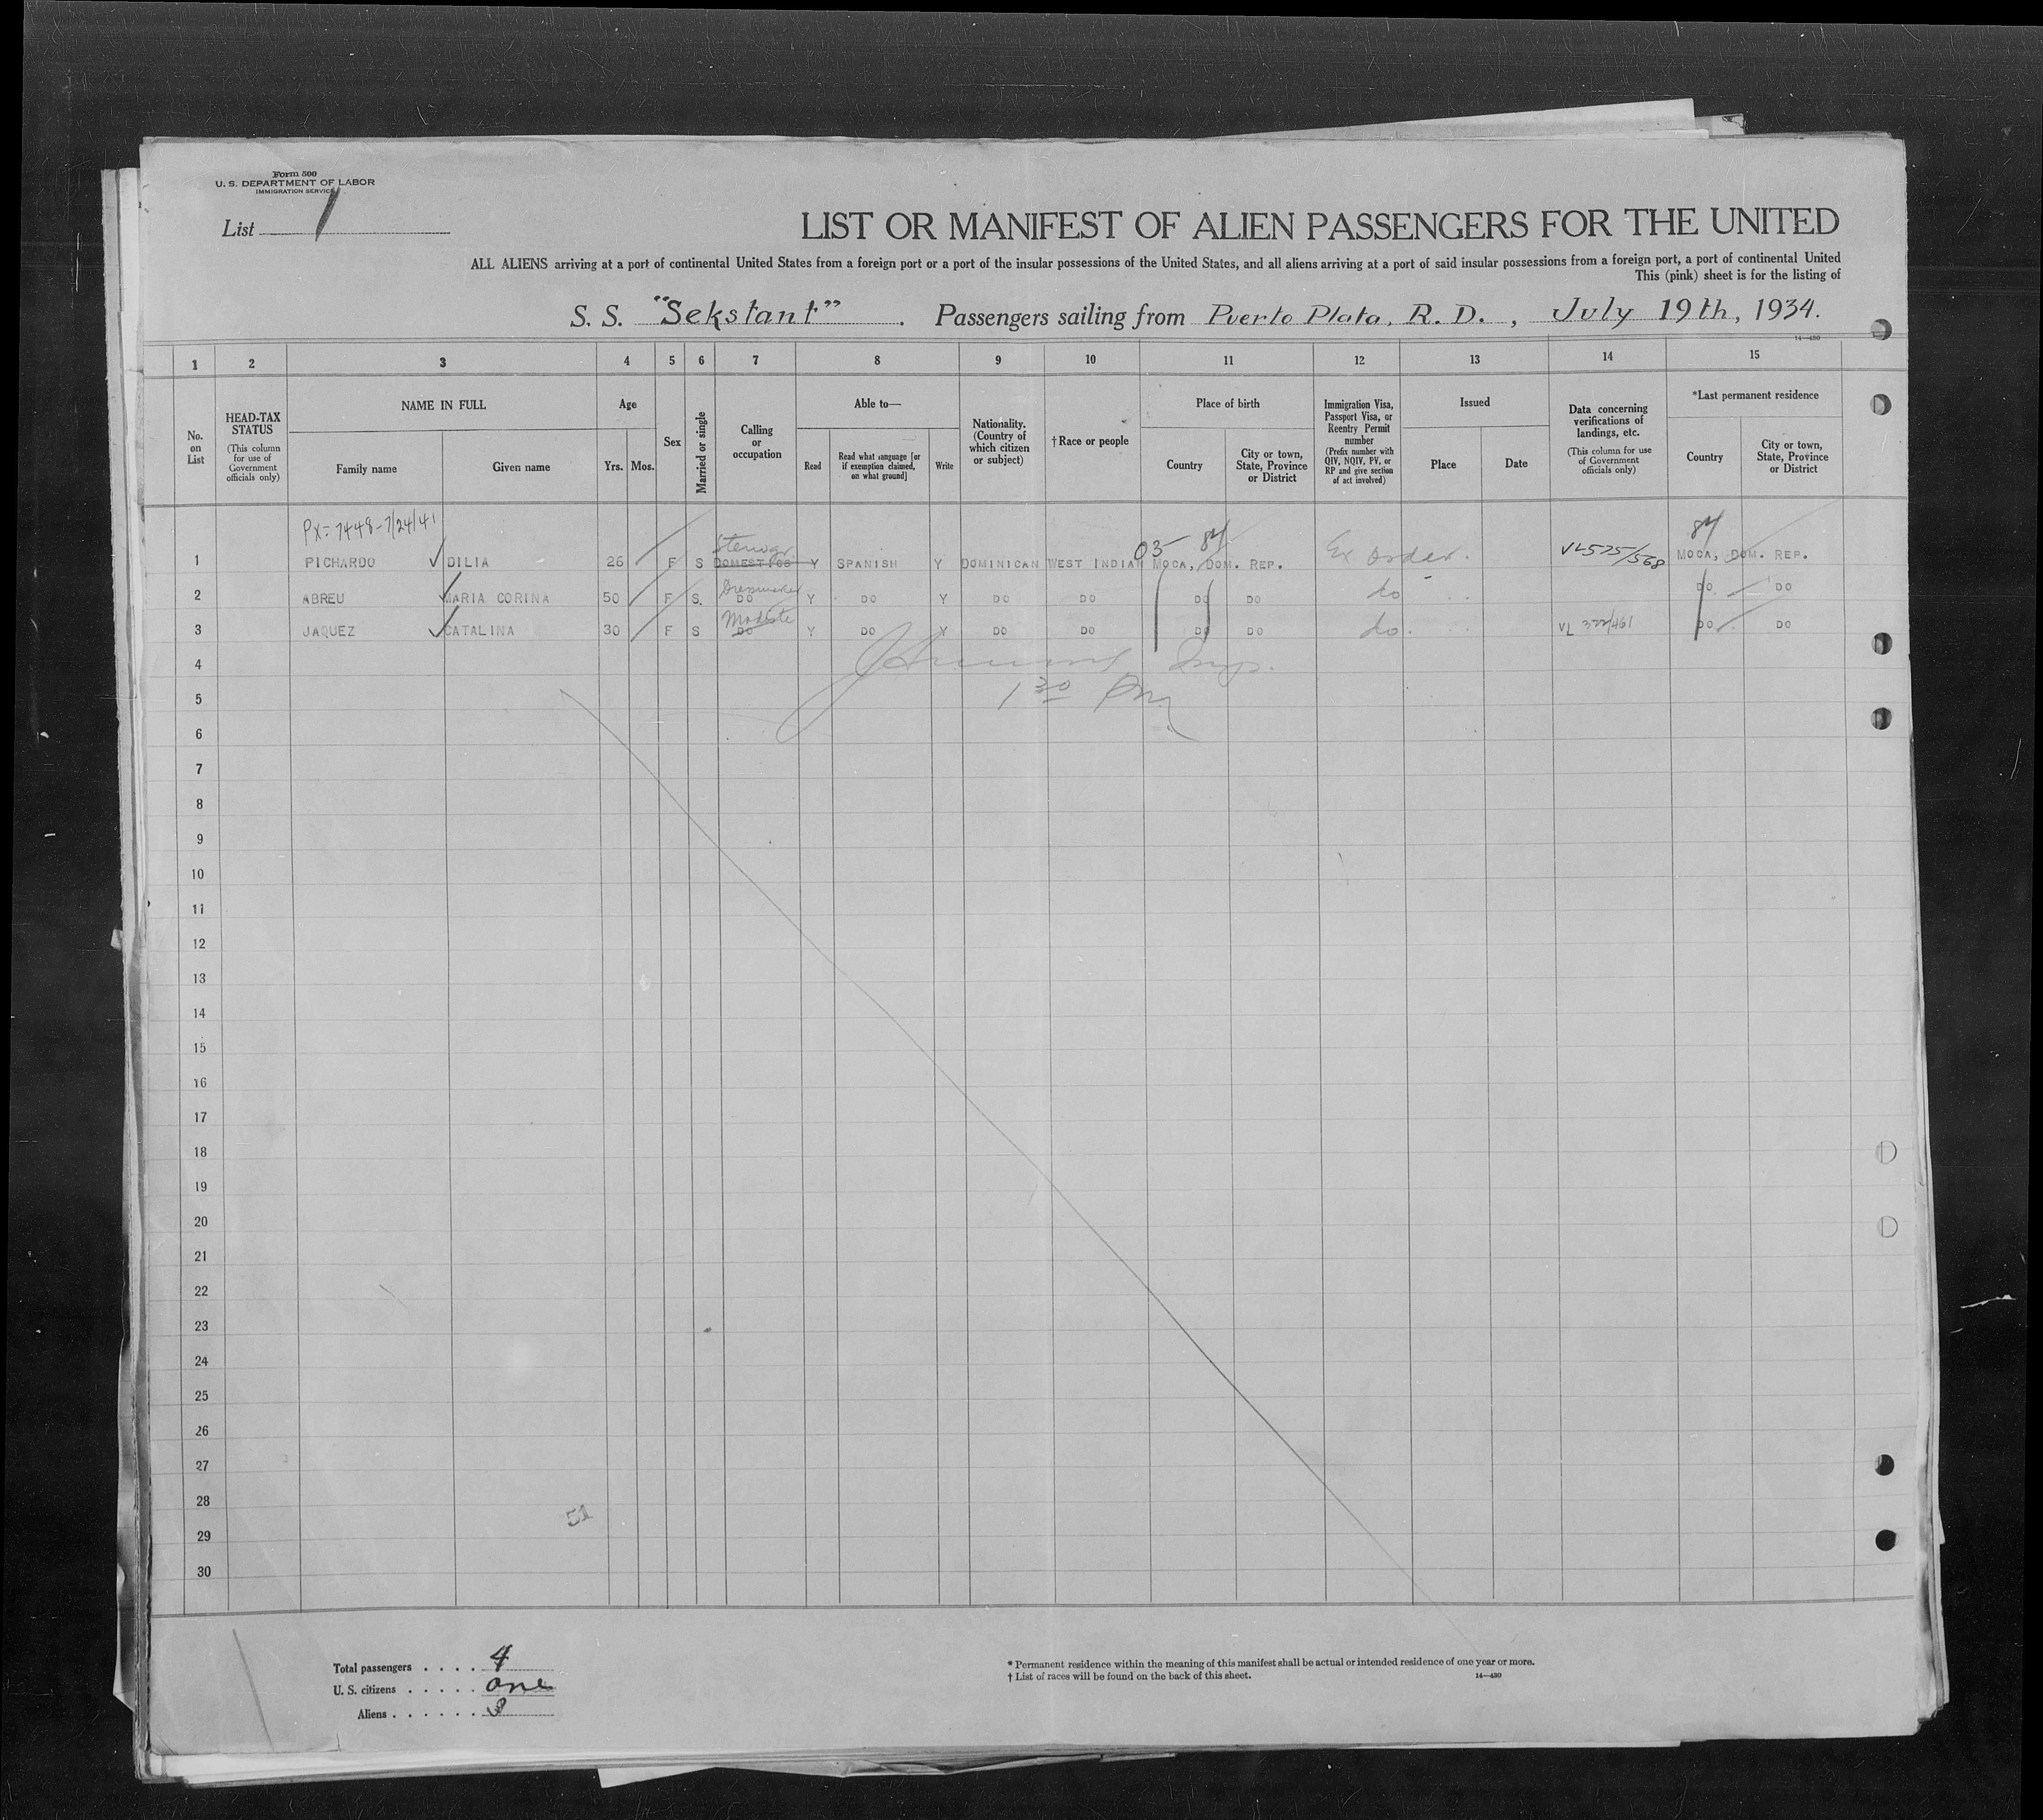 Form 500
U. S. DEPARTMENT OF LABOR
IMMIGRATION SERVICE
List 1
LIST OR MANIFEST OF ALIEN PASSENGERS FOR THE UNITED
ALL ALIENS arriving at a port of continental United States from a foreign port or a port of the insular possessions of the United States, and all aliens arriving at a port of said insular possessions from a foreign port, a port of continental United
This (pink) sheet is for the listing of
S. S. "Sekstant". Passengers sailing from Puerto Plata, R. D., July 19th, 1934.
14—430
1 2 3 4 5 6 7 8 9 10 11 12 13 14 15
No. on List
HEAD-TAX STATUS
(This column for use of Government officials only)
NAME IN FULL
Family name
Given name
Age
Yrs. Mos.
Sex
Married or single
Calling or occupation
Able to—
Read
Read what language [or if exemption claimed, on what ground]
Write
Nationality. (Country of which citizen or subject)
†Race or people
Place of birth
Country
City or town, State, Province or District
Immigration Visa, Passport Visa, or Reentry Permit number
(Prefix number with QIV, NQIV, PV, or RP and give section of act involved)
Issued
Place
Date
Data concerning verifications of landings, etc.
(This column for use of Government officials only)
*Last permanent residence
Country
City or town, State, Province or District
PX=7448-7/24/41
Stenogr 03- 84 84
1 PICHARDO DILIA 26 F S DOMESTICS Y SPANISH Y DOMINICAN WEST INDIAN MOCA, DOM. REP. Ex order. VL525/568 MOCA, DOM. REP.
Dressmaker
2 ABREU MARIA CORINA 50 F S. DO Y DO Y DO DO DO DO do DO DO
Modiste
3 JAQUEZ CATALINA 30 F S DO Y DO Y DO DO DO DO do. VL 322/461 DO DO
4 Insp.
5 1 30 PM
6
7
8
9
10
11
12
13
14
15
16
17
18
19
20
21
22
23
24
25
26
27
28
29
30
Total passengers . . . . 4
U. S. citizens . . . . . one
Aliens . . . . . . 3
* Permanent residence within the meaning of this manifest shall be actual or intended residence of one year or more.
† List of races will be found on the back of this sheet.
14—430